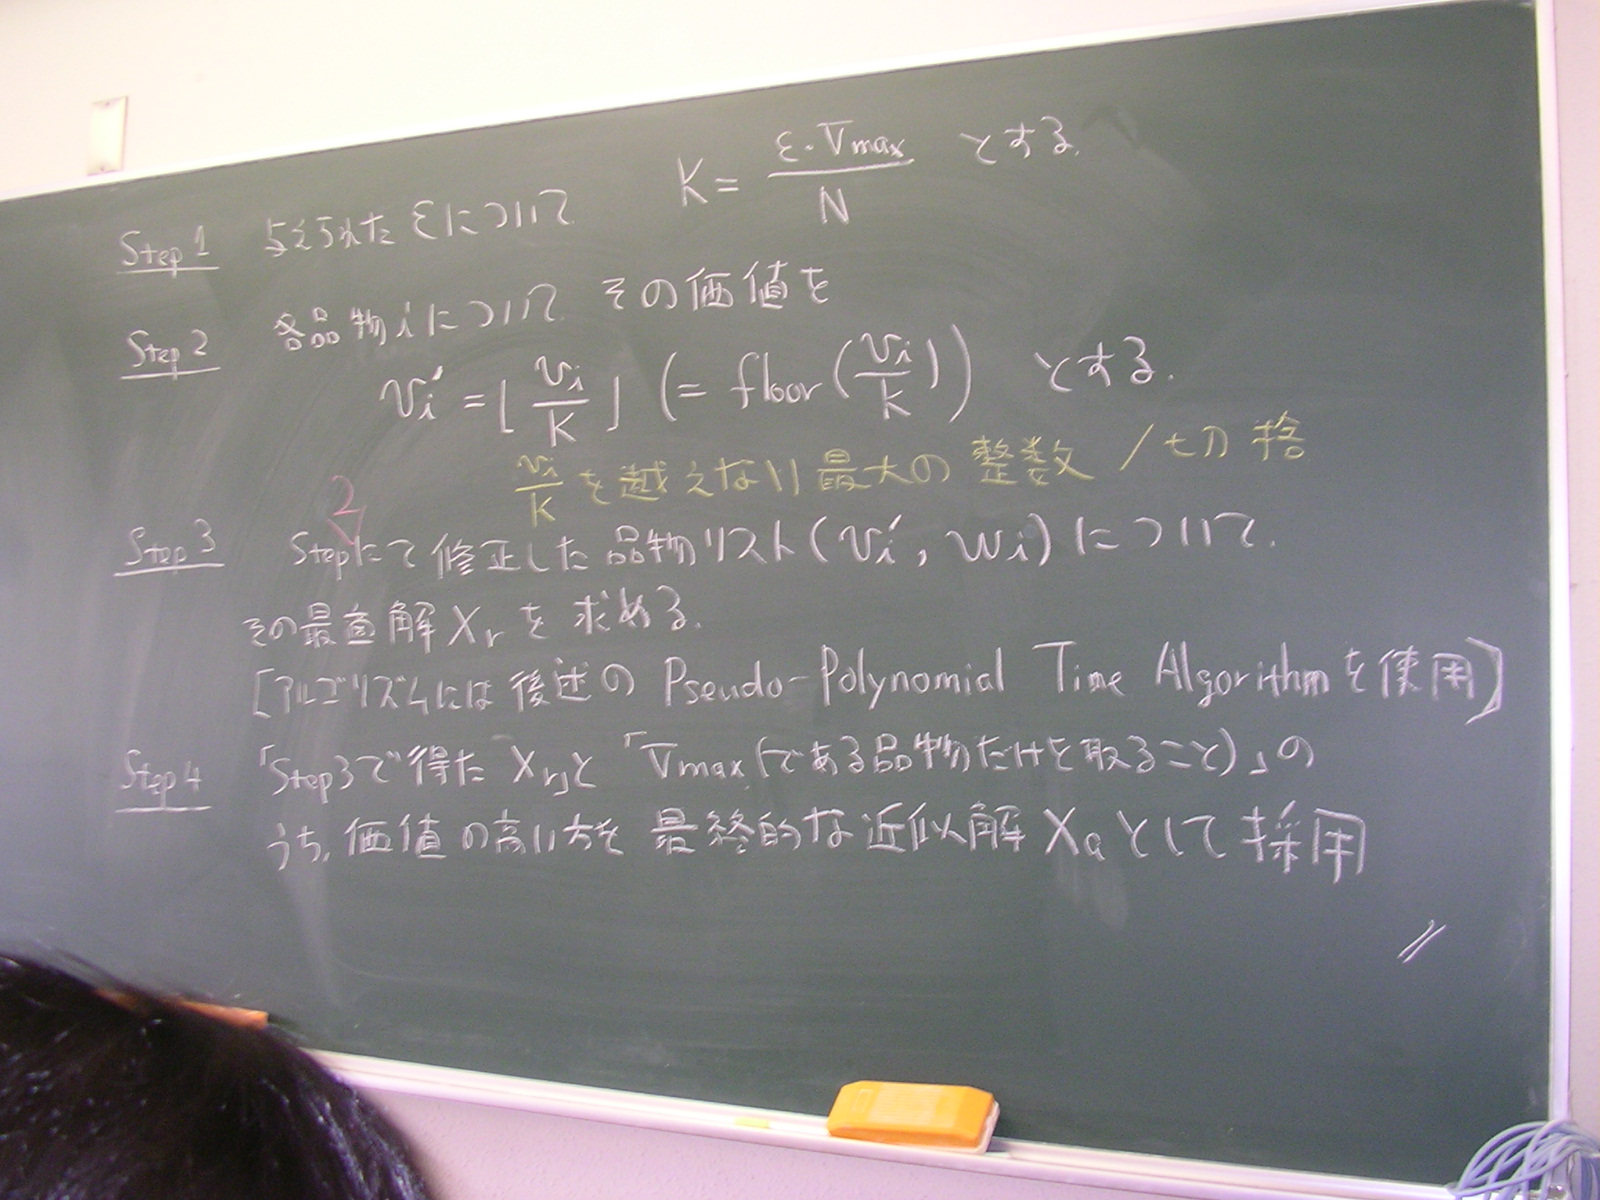 Step 1 与えられた εについて K = ε・Vmax / N とする.
Step 2 各品物iについて その価値を
vi' = ⌊vi/K⌋ (= floor(vi/K)) とする.
vi/K を越えない最大の整数 / 切捨
Step 3 Step2にて修正した品物リスト(vi', wi)について.
その最適解 Xr を 求める.
[アルゴリズムには後述の Pseudo-Polynomial Time Algorithmを使用]
Step 4 「Step3で得た Xr」と「Vmax(である品物だけを取ること)」の
うち, 価値の高い方を 最終的な近似解 Xa として採用